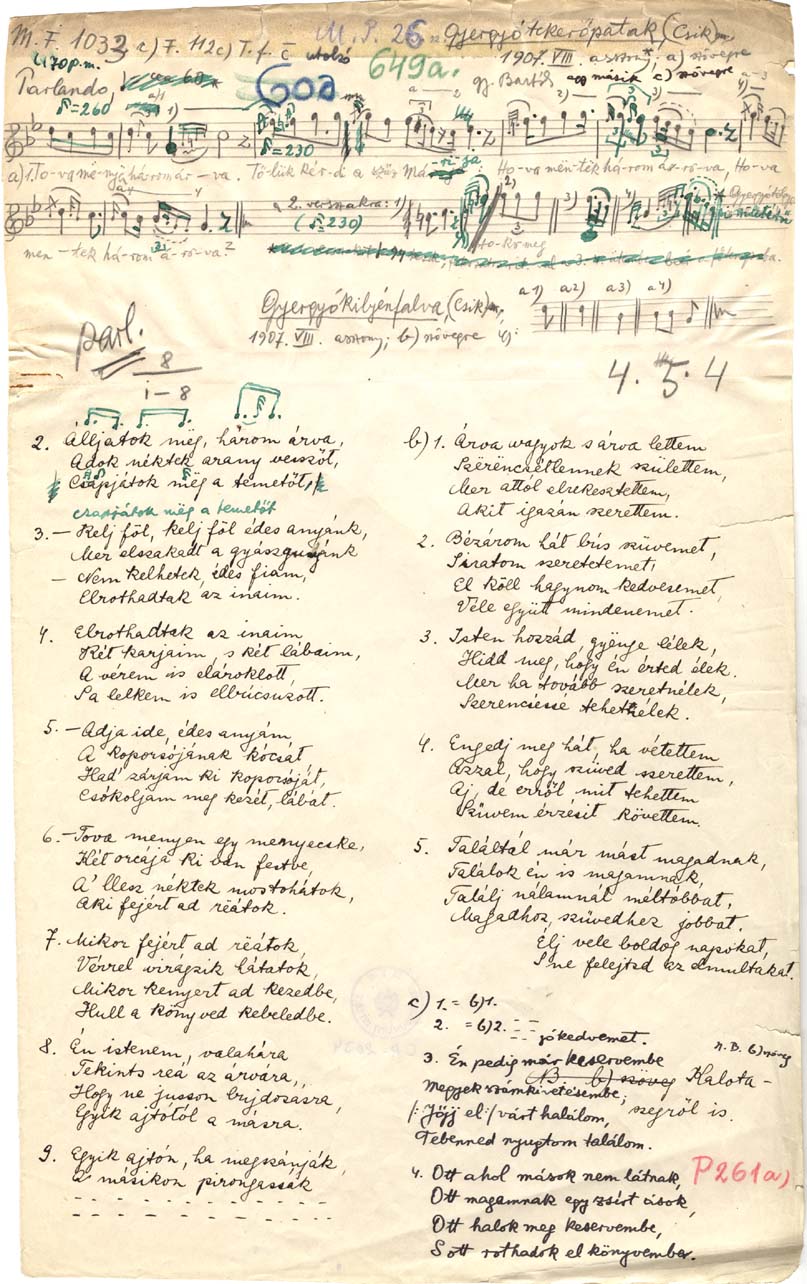 M. F. 1033 a) F. 112c) T. f. c̄ utolsó M. P. 26 Gyergyótekerőpatak, (Csik) m.
1907. VIII. asszony*, a) szövegre
♩70 p.m. 649a. gy. Bartók egy másik c) szövegre
Parlando 60a
♪=260
♪=230
a) 1. To-va më-nyën három ár-va. Tő-lük kér-di a szűz Má-ri-ja: Ho-va mën-tëk há-rom ár-va, Ho-va
2. versszakra: 1)
(♪=230)
men-tek há-rom á-ro-va?
to-ko meg
Gyergyókilyénfalva, (Csik) m.
a1) a2) a3) a4)
1907. VIII. asszony; b) szövegre
parl.
8
1-8
4. 5. 4
2. Álljatok mëg, három árva,
Adok néktek arany vesszőt,
Csapjátok mëg a temetőt,
csapjátok mëg a temetőt
3. – Kelj föl, kelj föl édes anyánk,
Mer elszakadt a gyászgunyánk
– Nem kelhetek, édes fiam,
Elrothadtak az inaim.
4. Elrothadtak az inaim
Két karjaim, s két lábaim,
A vérem is elároklott,
Sa lelkem is elbúcsuzott.
5. – Adja ide, édes anyám
A koporsójának kócsát
Had' zárjam ki koporsóját,
Csókoljam meg kezét, lábát.
6. – Tova menyen egy menyecske,
Két orcája ki van festve,
A' llesz néktek mostohátok,
Aki fejért ad rëátok.
7. Mikor fejért ad rëátok,
Vérrel virágzik hátatok,
Mikor kenyert ad kezedbe,
Hull a könyved kebeledbe.
8. Én istenem, valahára
Tekints reá az árvára,
Hogy ne jusson bujdosásra,
Egyik ajtótól a másra.
9. Egyik ajtón, ha megszánják,
A másikon pirongassák
b) 1. Árva vagyok s árva lettem
Szërëncsétlennek születtem,
Mer attól elrekesztettem,
Akit igazán szerettem.
2. Bézárom hát bús szüvemet,
Siratom szeretetemet,
El köll hagynom kedvesemet,
Véle együtt mindenemet.
3. Isten hozzád, gyënge lélek,
Hidd meg, hogy én érted élek.
Mer ha tovább szeretnélek,
Szerenciesse tehetnélek.
4. Engedj meg hát, ha vétettem
Azzal, hogy szüved szerettem,
Aj, de erről mit tehettem
Szüvem érzésit követtem.
5. Találtál már mást magadnak,
Találok én is magamnak,
Találj nálamnál méltóbbat,
Magadhoz, szüvedhez jobbat.
Élj vele boldog napokat,
S ne felejtsd az elmultakat.
c) 1. = b) 1.
2. = b) 2. – – – jókedvemet.
3. Én pedig már keservembe
Megyek számkivetésembe;
/: Jőjj el :/ várt halálom,
Tebenned nyugtom találom.
N. B. b) szöveg Kalota-
szegről is.
4. Ott ahol mások nem látnak,
Ott magamnak egy zsírt ások,
Ott halok meg keservembe,
S ott rothadok el könyvembe.
P261a)